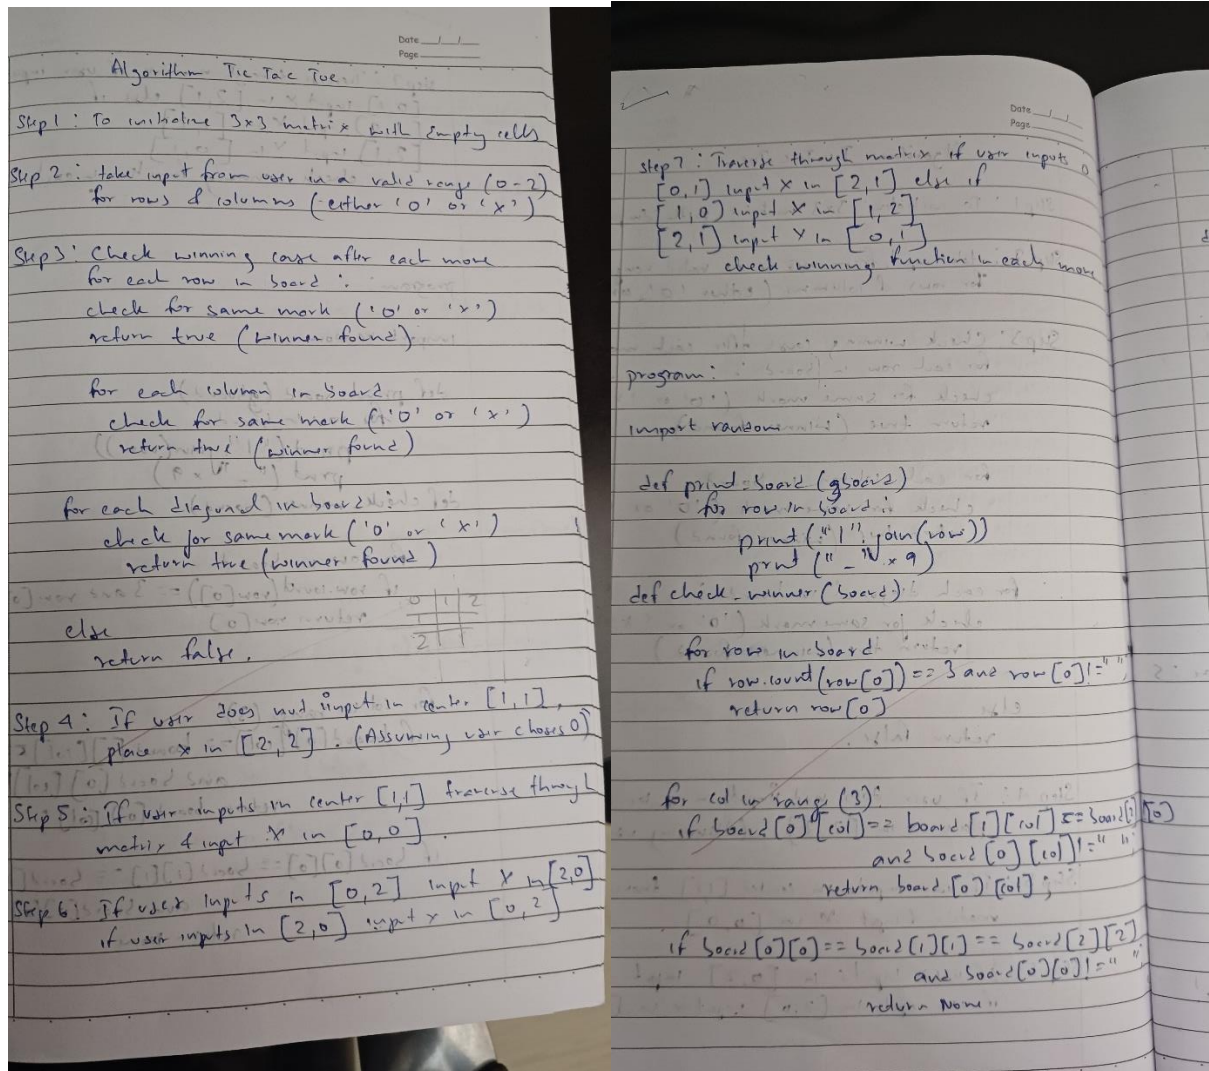 Date
Page
Algorithm Tic Tac Toe
Step 1 : To initialize 3x3 matrix with Empty cells
Step 2 : take input from user in a valid range (0-2)
for rows & columns (either 'O' or 'X')
Step 3 : Check winning case after each move
for each row in board :
check for same mark ('O' or 'X')
return true (winner found)
for each column in board
check for same mark ('O' or 'X')
return true (winner found)
for each diagonal in board :
check for same mark ('O' or 'X')
return true (winner found)
0 1 2
1
2
else
return false.
Step 4 : If user does not input in center [1,1],
place X in [2,2] . (Assuming user choses O)
Step 5 : If user inputs in center [1,1] traverse through
matrix & input X in [0,0] .
Step 6 : If user inputs in [0,2] input X in [2,0]
if user inputs in [2,0] input X in [0,2]
Date
Page
Step 7 : Traverse through matrix if user inputs O
[0,1] input X in [2,1] else if
[1,0] input X in [1,2]
[2,1] input X in [0,1]
check winning function in each move
program :
import random
def print-board (gboard)
for row in board :
print ("|".join(row))
print ("-" * 9)
def check-winner (board) :
for row in board
if row.count(row[0]) == 3 and row[0] != " "
return row[0]
for col in range (3) :
if board [0] [col] == board [1] [col] == board[2] [0]
and board [0] [col] != " " :
return board [0] [col] ;
if board [0][0] == board [1][1] == board [2][2]
and board [0][0] != " "
return None